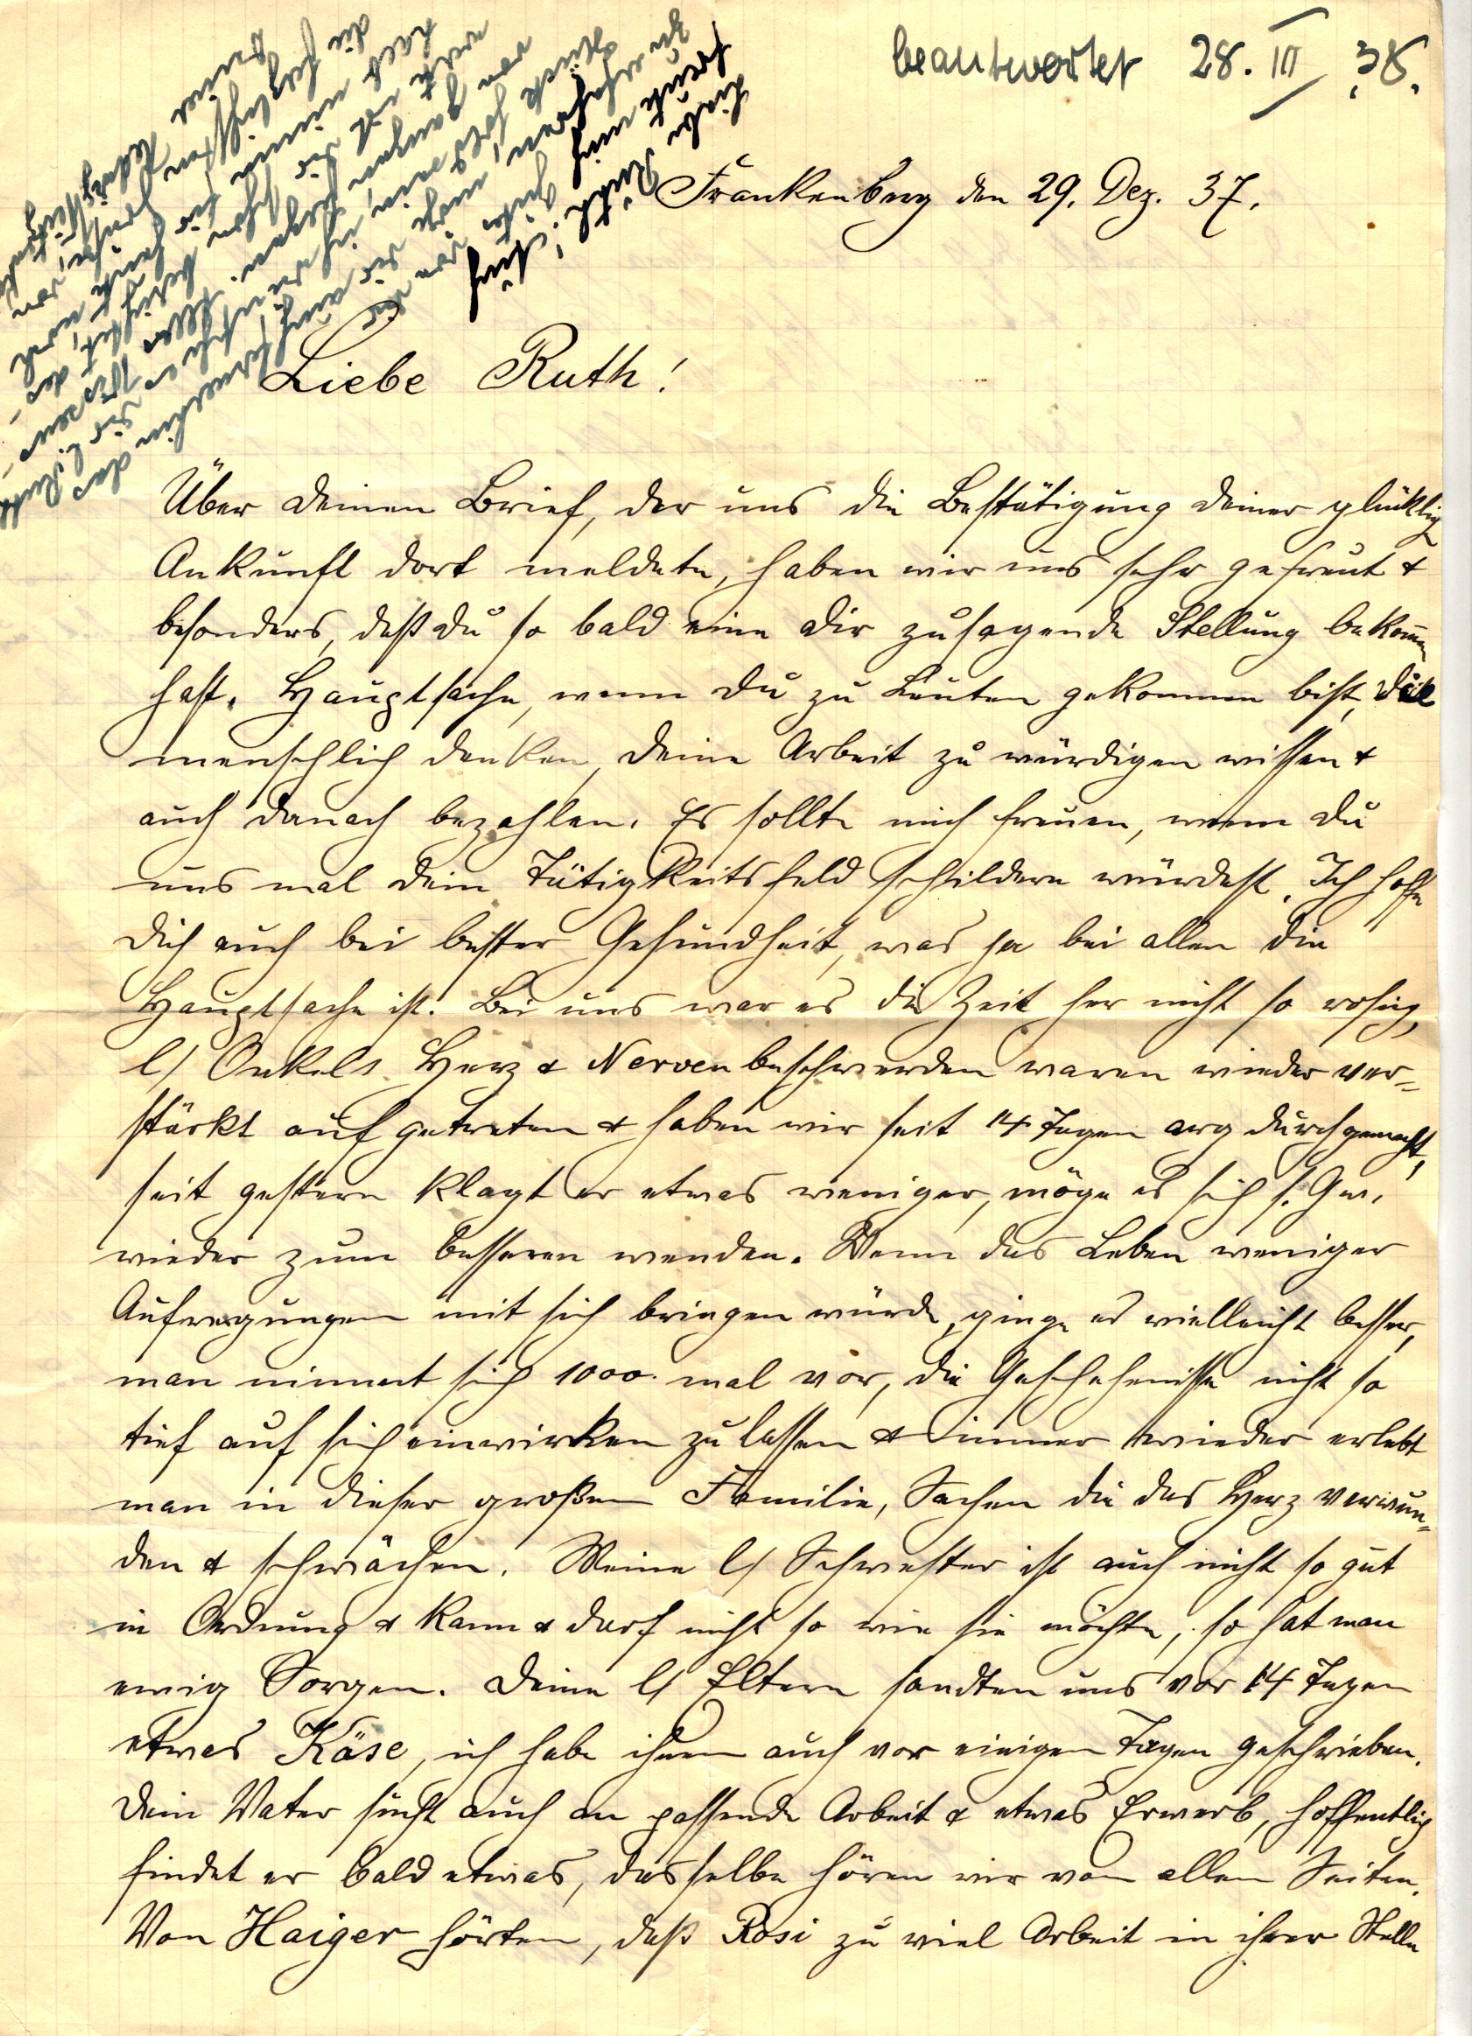 beantwortet 28. III. 38.
Frankenberg den 29. Dez. 37.
Liebe Ruth!
Über Deinen Brief, der uns die Bestätigung Deiner glücklich
Ankunft dort meldete, haben wir uns sehr gefreut &
besonders, daß Du so bald eine Dir zusagende Stellung bekommen
hast. Hauptsache, wenn Du zu Leuten gekommen bist, die
menschlich denken, Deine Arbeit zu würdigen wissen &
auch danach bezahlen. Es sollte mich freuen, wenn Du
uns mal Dein Tätigkeitsfeld schildern würdest. Ich hoffe
Dich auch bei bester Gesundheit, was ja bei allen die
Hauptsache ist. Bei uns war es die Zeit her nicht so rosig,
l/ Onkels Herz & Nervenbeschwerden waren wieder ver=
stärkt aufgetreten & haben wir seit 14 Tagen arg durchgemacht,
seit gestern klagt er etwas weniger, möge es sich s. G. w.
wieder zum besseren wenden. Wenn das Leben weniger
Aufregungen mit sich bringen würde, ginge es vielleicht besser,
man nimmt sich 1000 mal vor, die Geschehenisse nicht so
tief auf sich einwirken zu lassen & immer wieder erlebt
man in dieser großen Familie, Sachen die das Herz verwun=
den & schwächen. Meine l/ Schwester ist auch nicht so gut
in Ordnung & kann & darf nicht so wie sie möchte, so hat man
ewig Sorgen. Deine l/ Eltern sandten uns vor 14 Tagen
etwas Käse, ich habe ihnen auch vor einigen Tagen geschrieben.
Dein Vater sucht auch an passende Arbeit & etwas Erwerb, hoffentlich
findet er bald etwas, dasselbe hören wir von allen Seiten.
Von Haiger hörten, daß Rosi zu viel Arbeit in ihrer Stelle
Liebe Ruth!